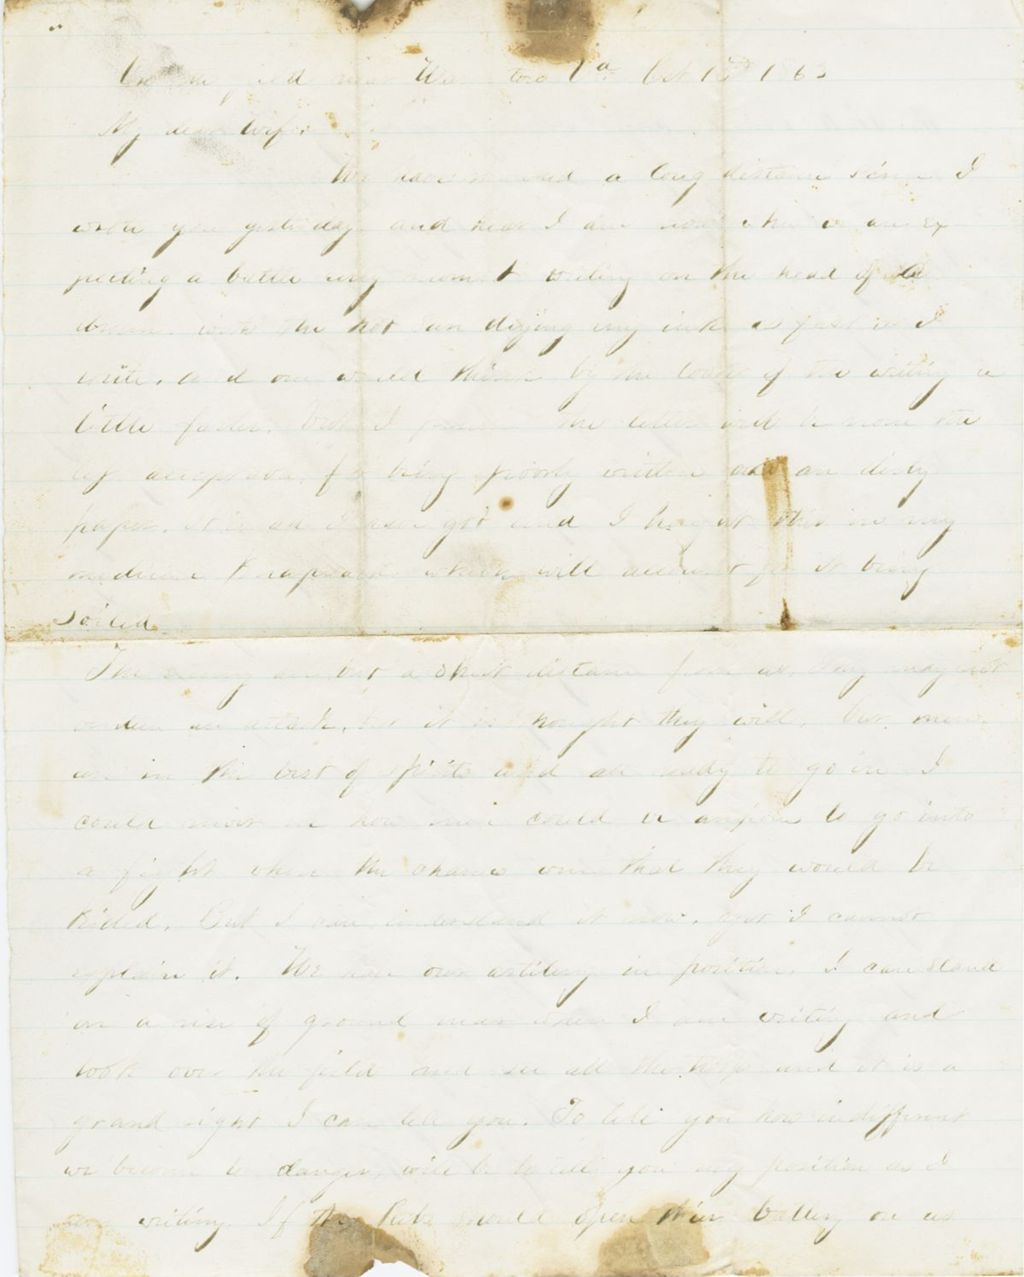 In the field near Va Oct 1863
My dear Wife
We have a long distance since I
wrote you yesterday and here I am now when we are ex
pecting a battle any moment writing on the head of a
drum with the hot sun drying my ink as fast as I
write, and one would think by the looks of the writing a
little faster. But I the letter will be none the
for being poorly written and on dirty
paper, it is all I have got and I have got this in my
knapsack which will account for it being
soiled
The enemy are but a short distance from us, they may not
an attack, but it is thought they will. Our men
are in the best of spirits and all ready to go in. I
could never see how men could be anxious to go into
a fight when the chances were that they would be
killed. But I can understand it now, yet I cannot
explain it. We have our artillery in position. I can stand
on a rise of ground near where I am writing and
look over the field and see all the troops and it is a
grand sight I can tell you. To tell you how indifferent
we become to danger, will be to tell you my position as I
am writing. If the Rebs should open their battery on us